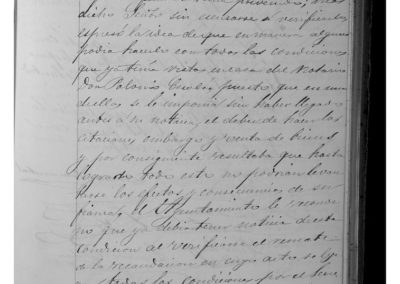 dicho Señor sin embargo á verificarlo
espresó la idea de que en manera alguna
podia hacerlo con todas las condiciones
que ya tenia vistas en casa del Notario
Don Polonio puesto que en una
de ellas se le imponia sin haber llegado
antes á su noticia, el deber de hacer las
citaciones embargo y venta de bienes
y por consiguiente resultaba que hasta
logrado todo esto no podrian levan
tarse los efectos y consecuencias de su
fianza, el Ayuntamiento le
que ya debia tener noticia de esta
condicion al verificarse el remate
de la recaudacion en cuyo acto se
todas las condiciones por el